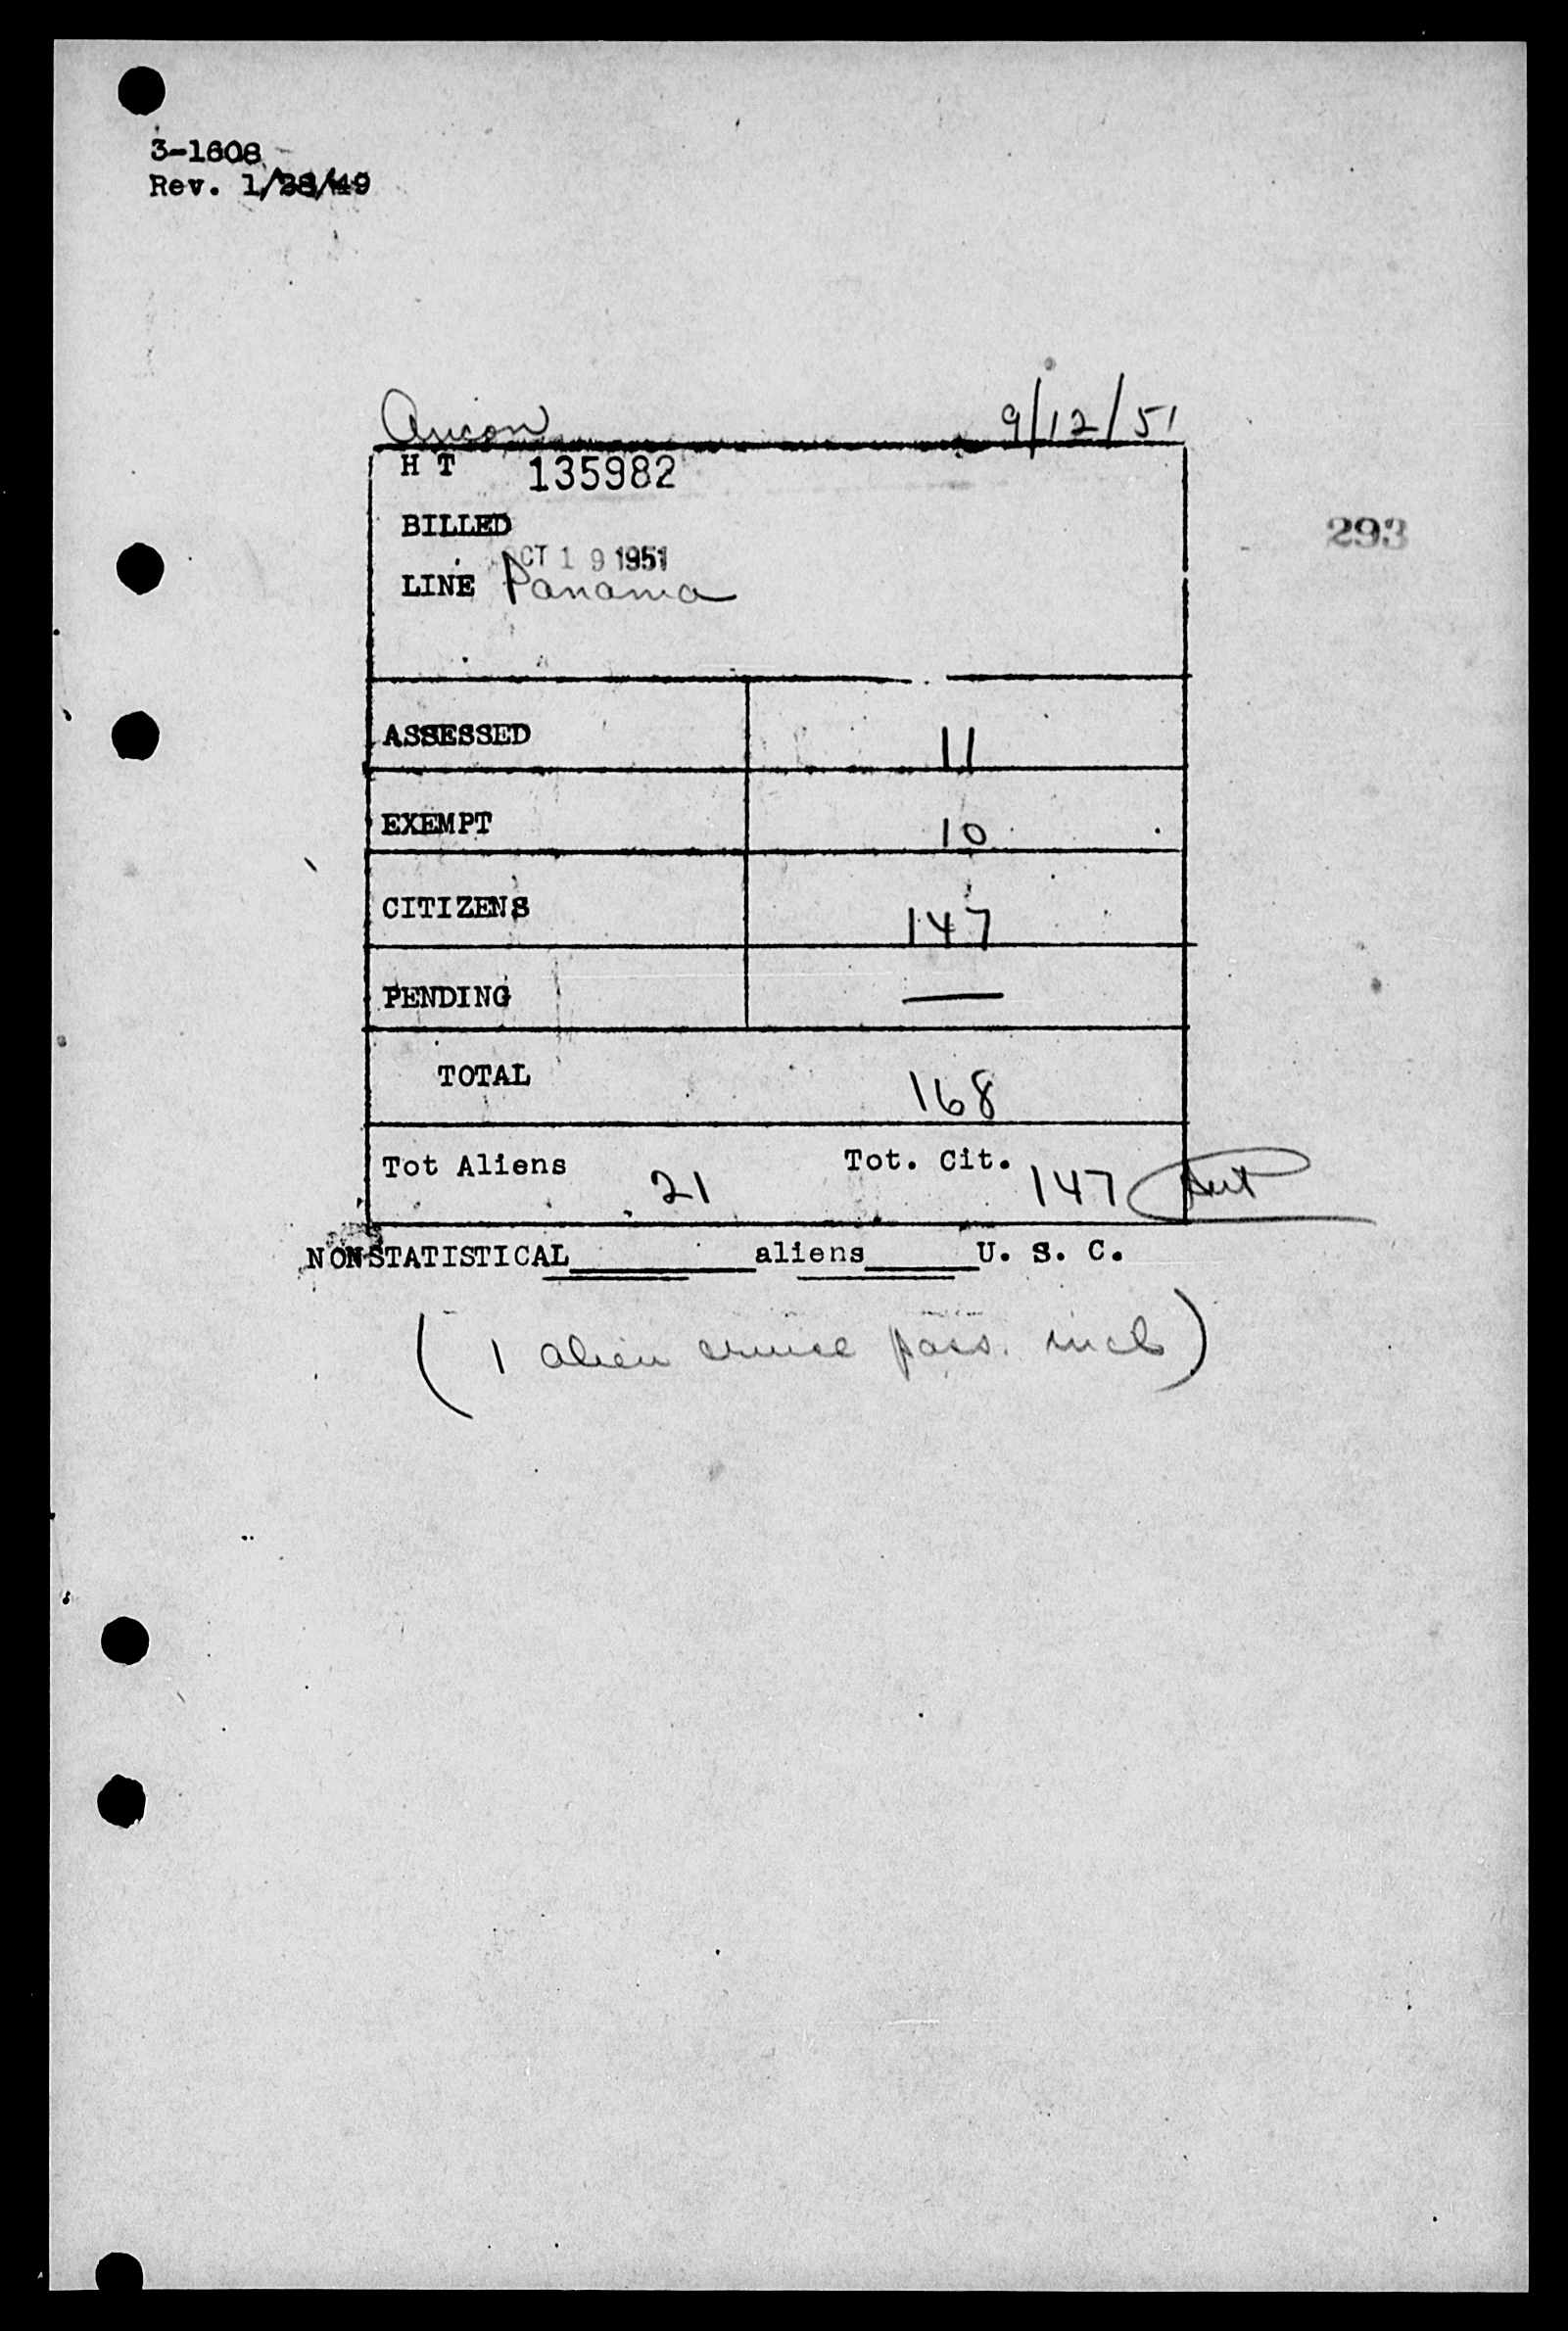 3-1608
Rev. 1/28/49
Ancon 9/12/51
H T 135982
293
BILLED
OCT 19 1951
LINE Panama
ASSESSED 11
EXEMPT 10
CITIZENS 147
PENDING —
TOTAL 168
Tot Aliens 21 Tot. Cit. 147
NONSTATISTICAL__________aliens______U. S. C.
( 1 alien cruise pass. incl )